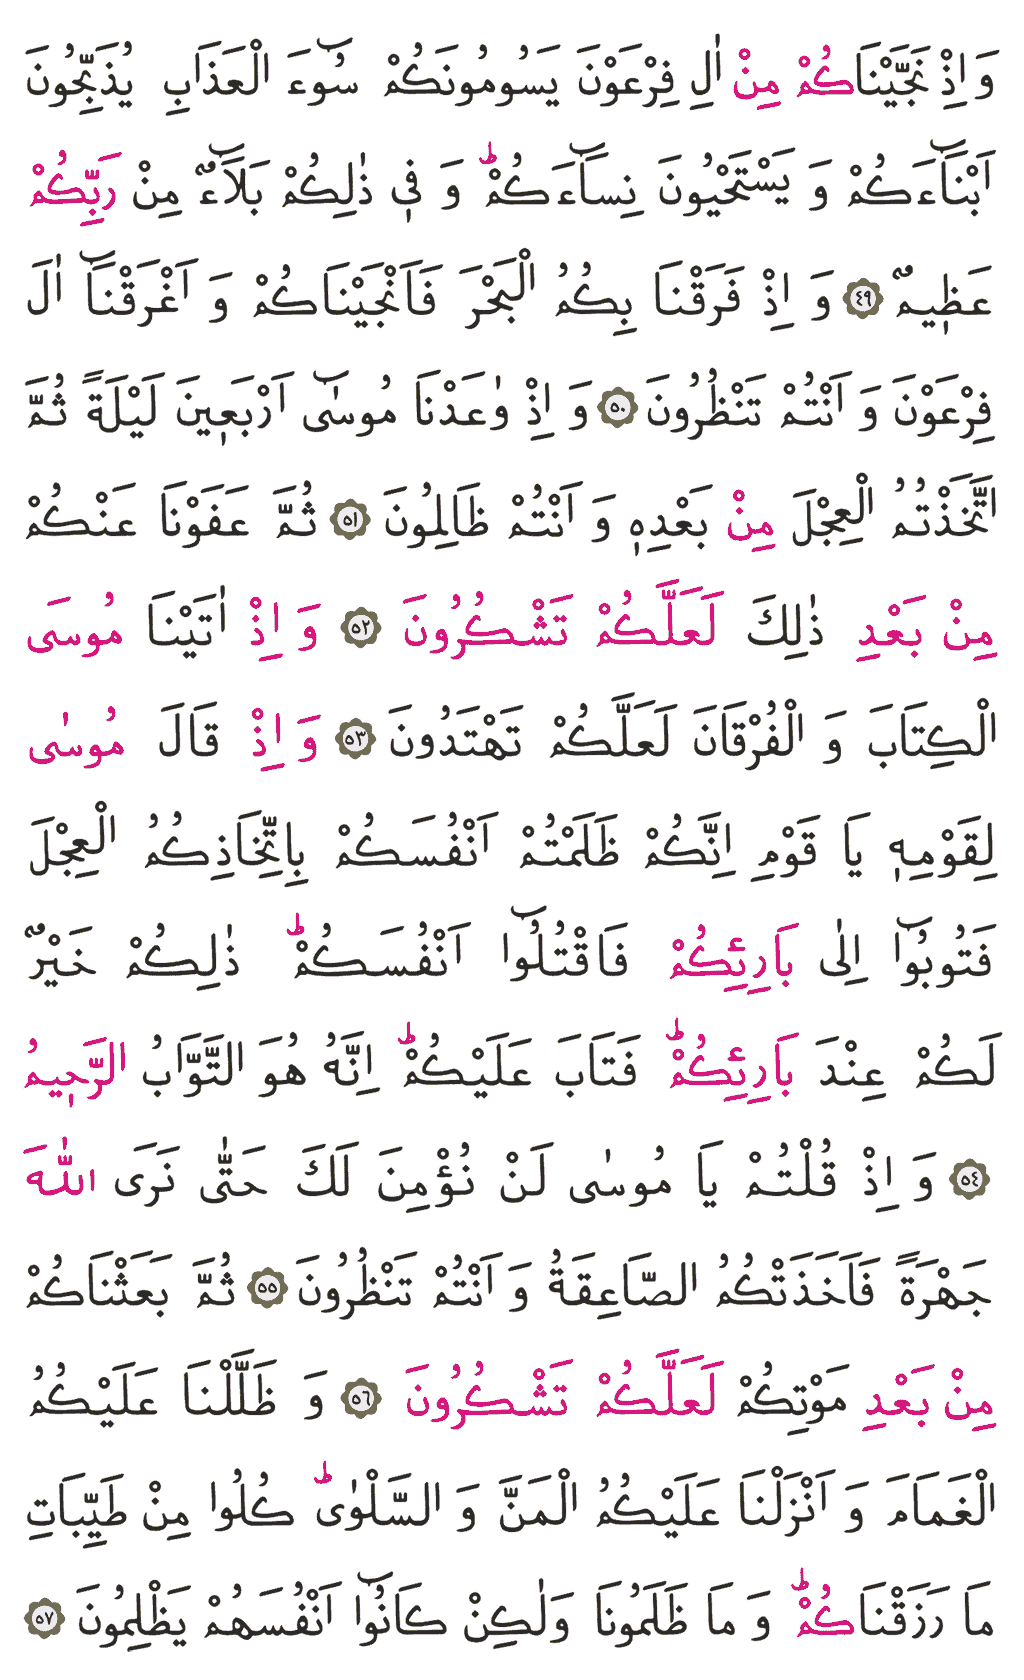 وَ اِذْ نَجَّيْنَاكُمْ مِنْ اٰلِ فِرْعَوْنَ يَسُومُونَكُمْ سُٓوءَ الْعَذَابِ يُذَبِّحُونَ
اَبْنَٓاءَكُمْ وَ يَسْتَحْيُونَ نِسَٓاءَكُمْۜ وَ فٖي ذٰلِكُمْ بَلَٓاءٌ مِنْ رَبِّكُمْ
عَظٖيمٌ ﴿٤٩﴾ وَ اِذْ فَرَقْنَا بِكُمُ الْبَحْرَ فَاَنْجَيْنَاكُمْ وَ اَغْرَقْنَٓا اٰلَ
فِرْعَوْنَ وَ اَنْتُمْ تَنْظُرُونَ ﴿٥٠﴾ وَ اِذْ وٰعَدْنَا مُوسٰٓى اَرْبَعٖينَ لَيْلَةً ثُمَّ
اتَّخَذْتُمُ الْعِجْلَ مِنْ بَعْدِهٖ وَ اَنْتُمْ ظَالِمُونَ ﴿٥١﴾ ثُمَّ عَفَوْنَا عَنْكُمْ
مِنْ بَعْدِ ذٰلِكَ لَعَلَّكُمْ تَشْكُرُونَ ﴿٥٢﴾ وَ اِذْ اٰتَيْنَا مُوسَى
الْكِتَابَ وَ الْفُرْقَانَ لَعَلَّكُمْ تَهْتَدُونَ ﴿٥٣﴾ وَ اِذْ قَالَ مُوسٰى
لِقَوْمِهٖ يَا قَوْمِ اِنَّكُمْ ظَلَمْتُمْ اَنْفُسَكُمْ بِاتِّخَاذِكُمُ الْعِجْلَ
فَتُوبُٓوا اِلٰى بَارِئِكُمْ فَاقْتُلُٓوا اَنْفُسَكُمْۜ ذٰلِكُمْ خَيْرٌ
لَكُمْ عِنْدَ بَارِئِكُمْۜ فَتَابَ عَلَيْكُمْۜ اِنَّهُ هُوَ التَّوَّابُ الرَّحٖيمُ
﴿٥٤﴾ وَ اِذْ قُلْتُمْ يَا مُوسٰى لَنْ نُؤْمِنَ لَكَ حَتّٰى نَرَى اللّٰهَ
جَهْرَةً فَاَخَذَتْكُمُ الصَّاعِقَةُ وَ اَنْتُمْ تَنْظُرُونَ ﴿٥٥﴾ ثُمَّ بَعَثْنَاكُمْ
مِنْ بَعْدِ مَوْتِكُمْ لَعَلَّكُمْ تَشْكُرُونَ ﴿٥٦﴾ وَ ظَلَّلْنَا عَلَيْكُمُ
الْغَمَامَ وَ اَنْزَلْنَا عَلَيْكُمُ الْمَنَّ وَ السَّلْوٰىۜ كُلُوا مِنْ طَيِّبَاتِ
مَا رَزَقْنَاكُمْۜ وَ مَا ظَلَمُونَا وَلٰكِنْ كَانُٓوا اَنْفُسَهُمْ يَظْلِمُونَ ﴿٥٧﴾